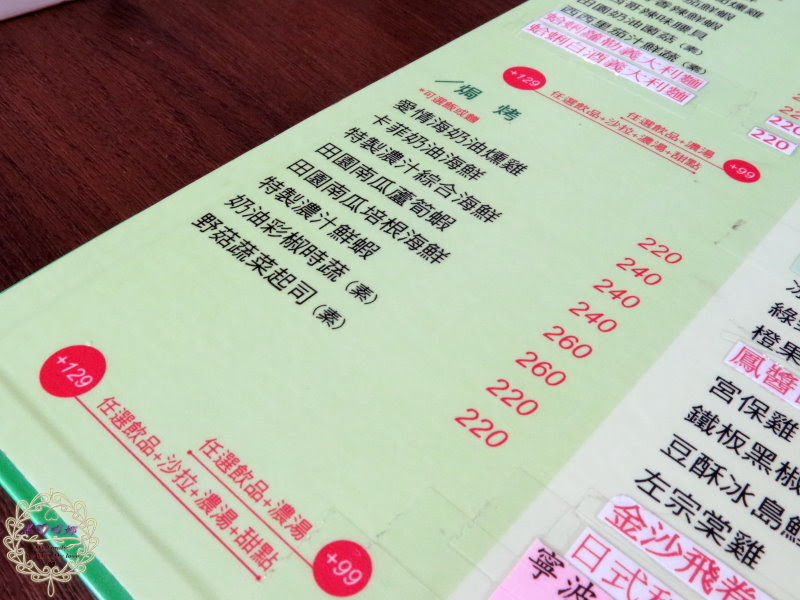 西西里茄汁鮮蔬(素)
蛤蜊羅勒義大利麵
蛤蜊白酒義大利麵
220
220
+129
任選飲品+濃湯
任選飲品+沙拉+濃湯+甜點
+99
焗烤
*可選飯或麵
愛情海奶油燻雞 220
卡菲奶油海鮮 240
特製濃汁綜合海鮮 240
田園南瓜蘆筍蝦 240
田園南瓜培根海鮮 260
特製濃汁鮮蝦 260
奶油彩椒時蔬(素) 220
野菇蔬菜起司(素) 220
+129
任選飲品+濃湯
任選飲品+沙拉+濃湯+甜點
+99
橙果
鳳醬
宮保雞
鐵板黑椒
豆酥冰島
左宗棠雞
金沙飛卷
日式
寧波